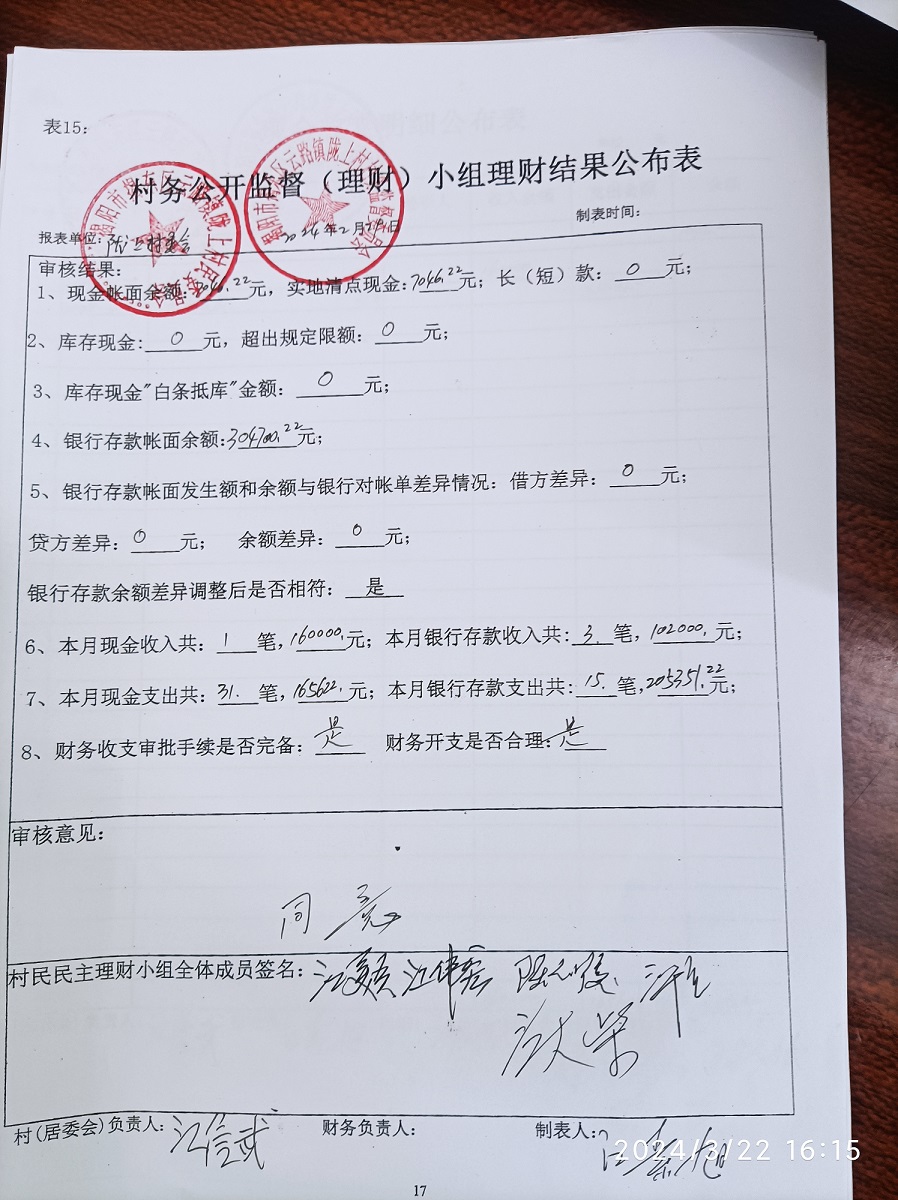 表15:
村务公开监督（理财）小组理财结果公布表
制表时间:
报表单位: 陇上村委会 2024年2月29日
审核结果:
1、现金帐面余额: 7046.22元，实地清点现金: 7046.22元；长（短）款: 0 元；
2、库存现金: 0 元，超出规定限额: 0 元；
3、库存现金"白条抵库"金额: 0 元；
4、银行存款帐面余额: 304700.22元；
5、银行存款帐面发生额和余额与银行对帐单差异情况: 借方差异: 0 元；
贷方差异: 0 元； 余额差异: 0 元；
银行存款余额差异调整后是否相符: 是
6、本月现金收入共: 1 笔, 160000.元；本月银行存款收入共: 3. 笔, 102000. 元；
7、本月现金支出共: 31. 笔, 165622. 元；本月银行存款支出共: 15. 笔, 205351.22元；
8、财务收支审批手续是否完备: 是 财务开支是否合理: 是
审核意见:
同意
村民民主理财小组全体成员签名:
村(居委会)负责人: 江信武 财务负责人: 制表人:
2024/3/22 16:15
17